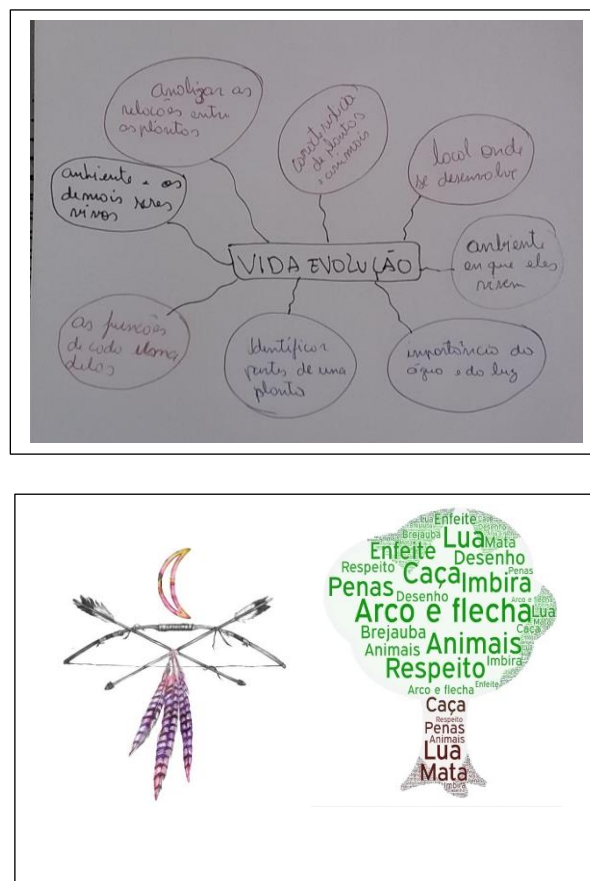 analizar as
relações entre
as plantas
característica
de plantas
e animais
local onde
se desenvolve
ambiente e os
demais seres
vivos
VIDA EVOLUÇÃO
ambiente
em que eles
vivem
as funções
de cada uma
delas
Identificar
partes de uma
planta
importância da
água e da luz
Lua Enfeite
Brejauba
Enfeite Lua Mata
Respeito Caça Desenho
Penas Desenho Imbira Penas
Arco e flecha
Arco e flecha Lua
Brejauba Animais Caça
Animais
Respeito Imbira
Arco e flecha Enfeite
Caça
Respeito
Penas
Animais
Lua
Mata
Imbira